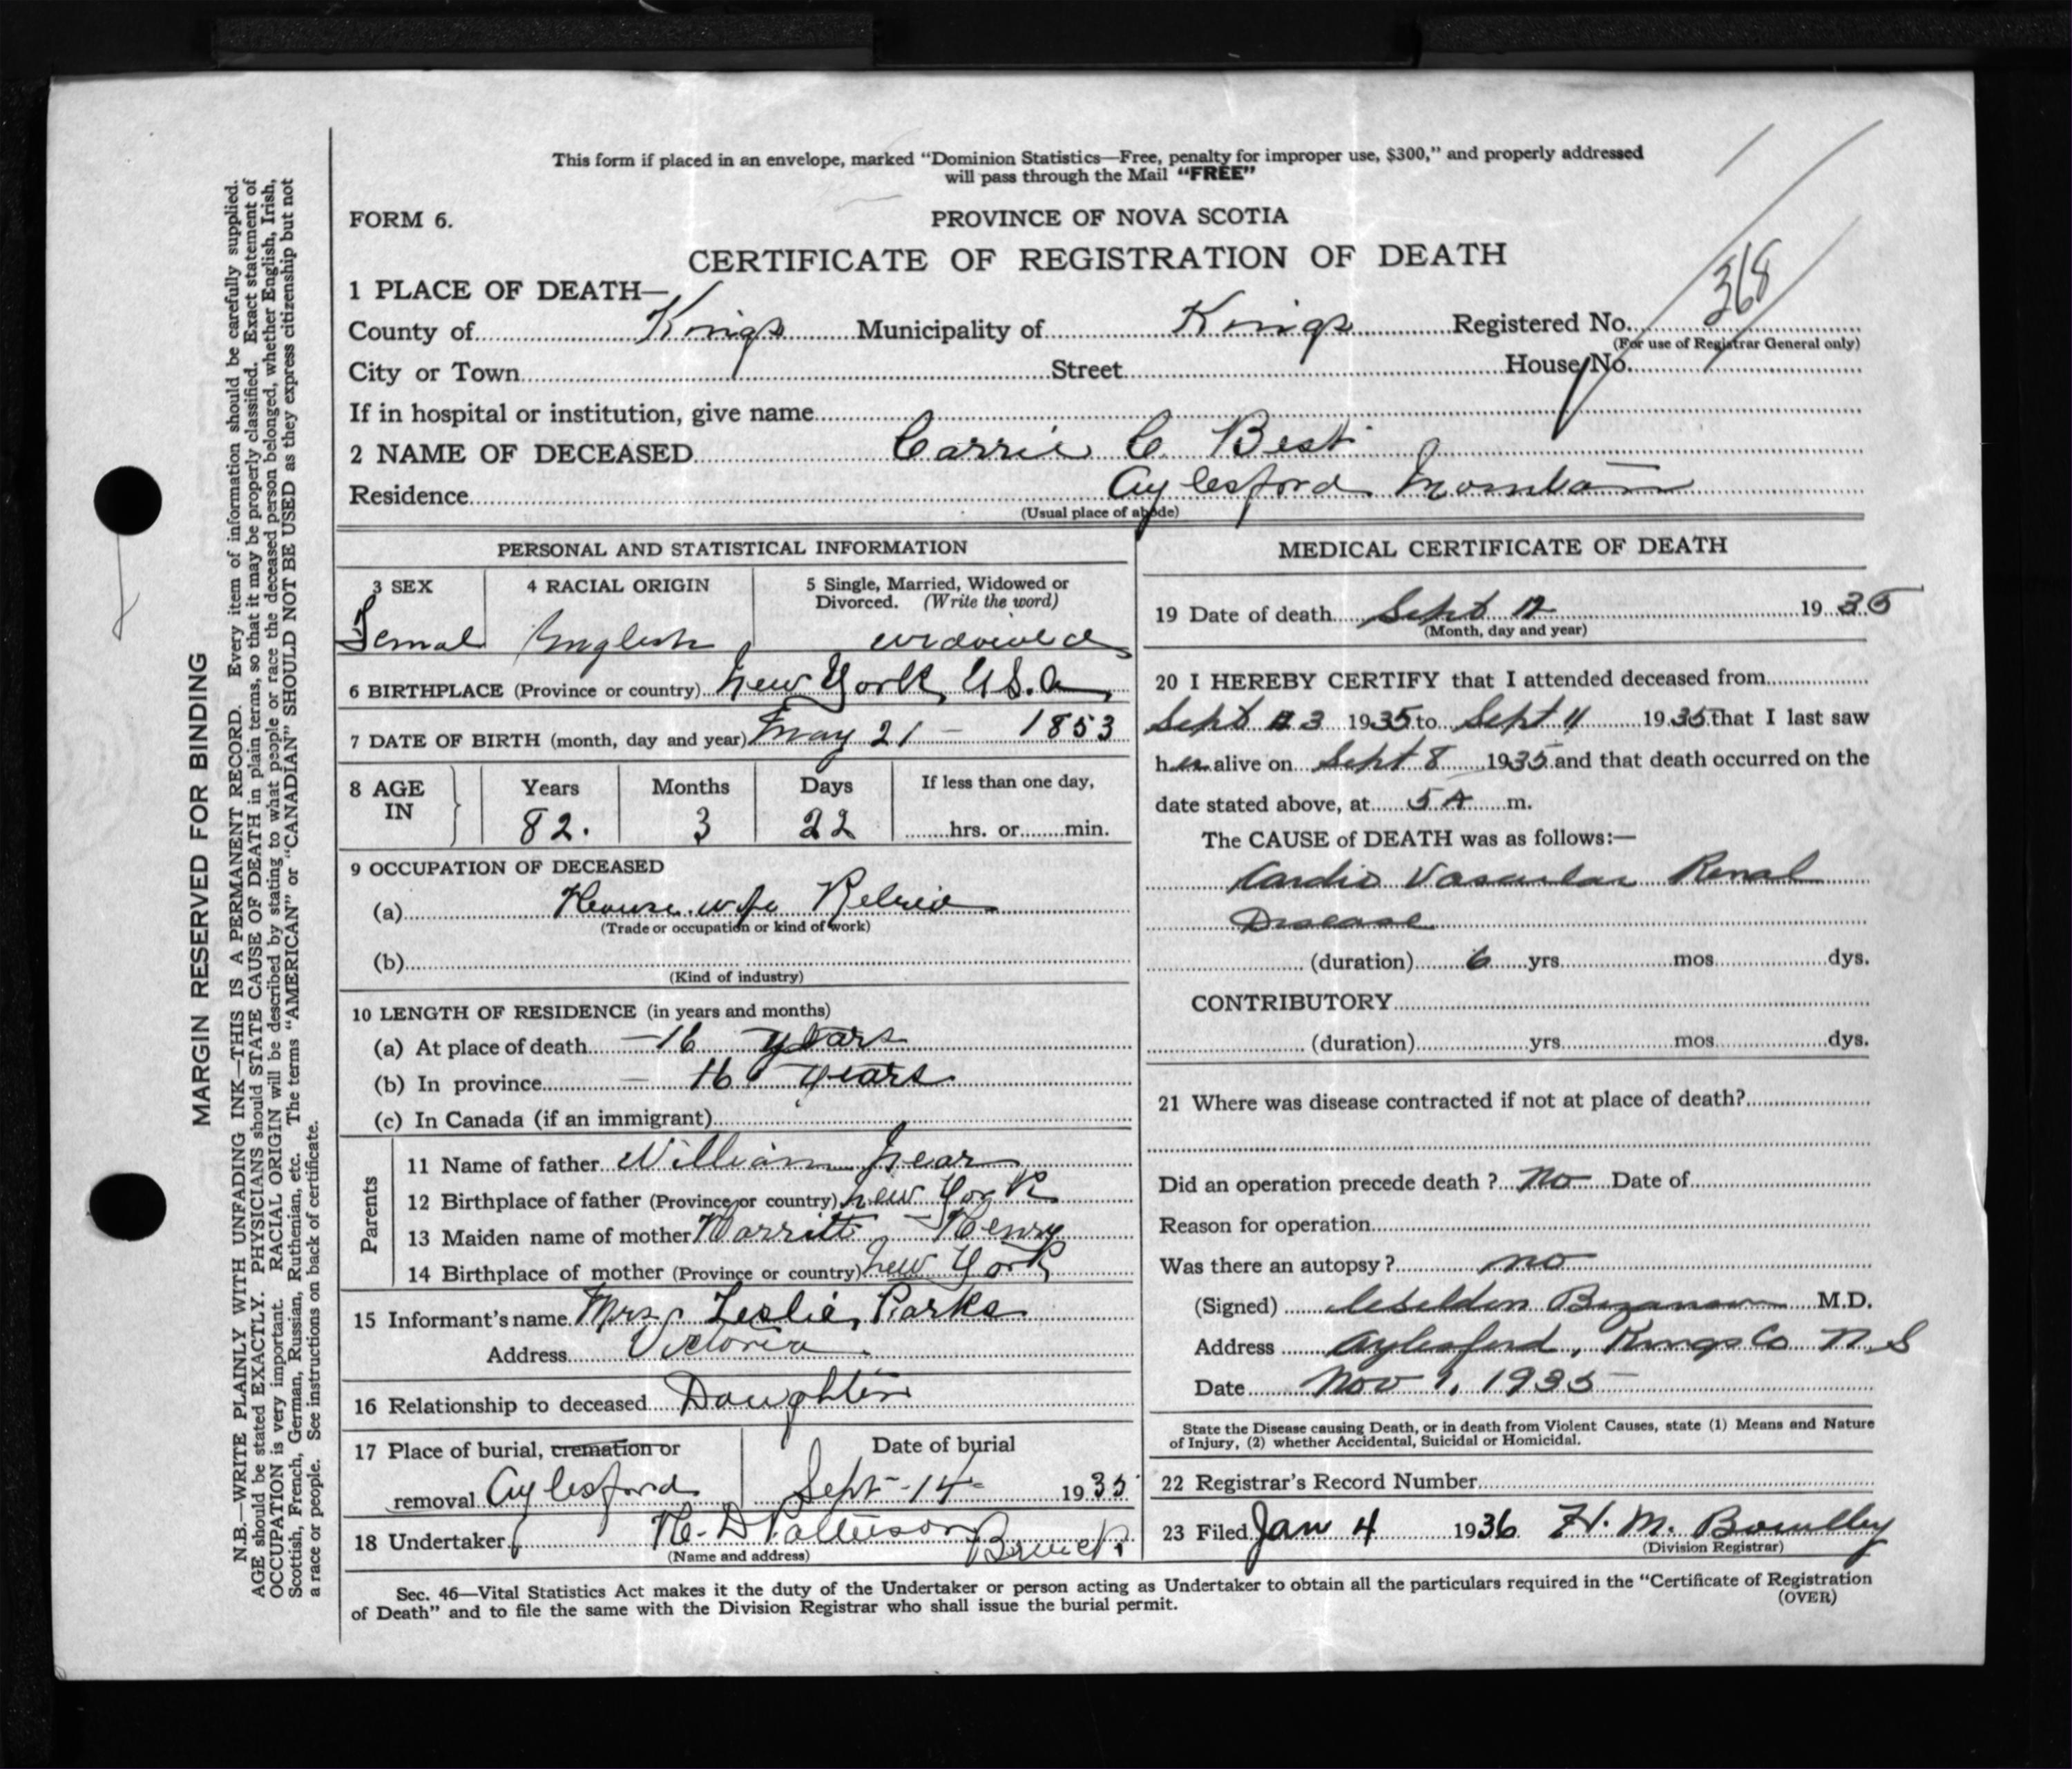 This form if placed in an envelope, marked “Dominion Statistics—Free, penalty for improper use, $300,” and properly addressed
will pass through the Mail “FREE”
FORM 6.
PROVINCE OF NOVA SCOTIA
CERTIFICATE OF REGISTRATION OF DEATH
1 PLACE OF DEATH—
County of Kings Municipality of Kings Registered No. 368
(For use of Registrar General only)
City or Town Street House No.
If in hospital or institution, give name
2 NAME OF DECEASED Carrie C Best
Residence Aylesford Mountain
(Usual place of abode)
PERSONAL AND STATISTICAL INFORMATION
3 SEX 4 RACIAL ORIGIN 5 Single, Married, Widowed or
Divorced. (Write the word)
Femal English widowed
6 BIRTHPLACE (Province or country) New York, U.S.A
7 DATE OF BIRTH (month, day and year) May 21 - 1853
8 AGE IN Years Months Days If less than one day,
82. 3 22 hrs. or min.
9 OCCUPATION OF DECEASED
(a) House wife Retried
(Trade or occupation or kind of work)
(b)
(Kind of industry)
10 LENGTH OF RESIDENCE (in years and months)
(a) At place of death 16 years
(b) In province 16 years
(c) In Canada (if an immigrant)
Parents
11 Name of father William
12 Birthplace of father (Province or country) New York
13 Maiden name of mother Harritt Henry
14 Birthplace of mother (Province or country) New York
15 Informant's name Mrs Leslie Parks
Address Victoria
16 Relationship to deceased Daughter
17 Place of burial, cremation or Date of burial
removal Aylesford Sept-14- 1935
18 Undertaker H. D Patterson
(Name and address)
MEDICAL CERTIFICATE OF DEATH
19 Date of death Sept 12 1935
(Month, day and year)
20 I HEREBY CERTIFY that I attended deceased from
Sept 3 1935 to Sept 11 1935 that I last saw
her alive on Sept 8 1935 and that death occurred on the
date stated above, at 5 A m.
The CAUSE of DEATH was as follows:—
Cardio Vascular Renal
Disease
(duration) 6 yrs. mos. dys.
CONTRIBUTORY
(duration) yrs. mos. dys.
21 Where was disease contracted if not at place of death?
Did an operation precede death ? No Date of
Reason for operation
Was there an autopsy ? no
(Signed) M.D.
Address Aylesford, Kings Co N.S
Date Nov 1, 1935
State the Disease causing Death, or in death from Violent Causes, state (1) Means and Nature
of Injury, (2) whether Accidental, Suicidal or Homicidal.
22 Registrar's Record Number
23 Filed Jan 4 1936 H. M.
(Division Registrar)
Sec. 46—Vital Statistics Act makes it the duty of the Undertaker or person acting as Undertaker to obtain all the particulars required in the “Certificate of Registration
of Death” and to file the same with the Division Registrar who shall issue the burial permit.
(OVER)
MARGIN RESERVED FOR BINDING
N.B.—WRITE PLAINLY WITH UNFADING INK—THIS IS A PERMANENT RECORD. Every item of information should be carefully supplied.
AGE should be stated EXACTLY. PHYSICIANS should STATE CAUSE OF DEATH in plain terms, so that it may be properly classified. Exact statement of
OCCUPATION is very important. RACIAL ORIGIN will be described by stating to what people or race the deceased person belonged, whether English, Irish,
Scottish, French, German, Russian, Ruthenian, etc. The terms “AMERICAN” or “CANADIAN” SHOULD NOT BE USED as they express citizenship but not
a race or people. See instructions on back of certificate.